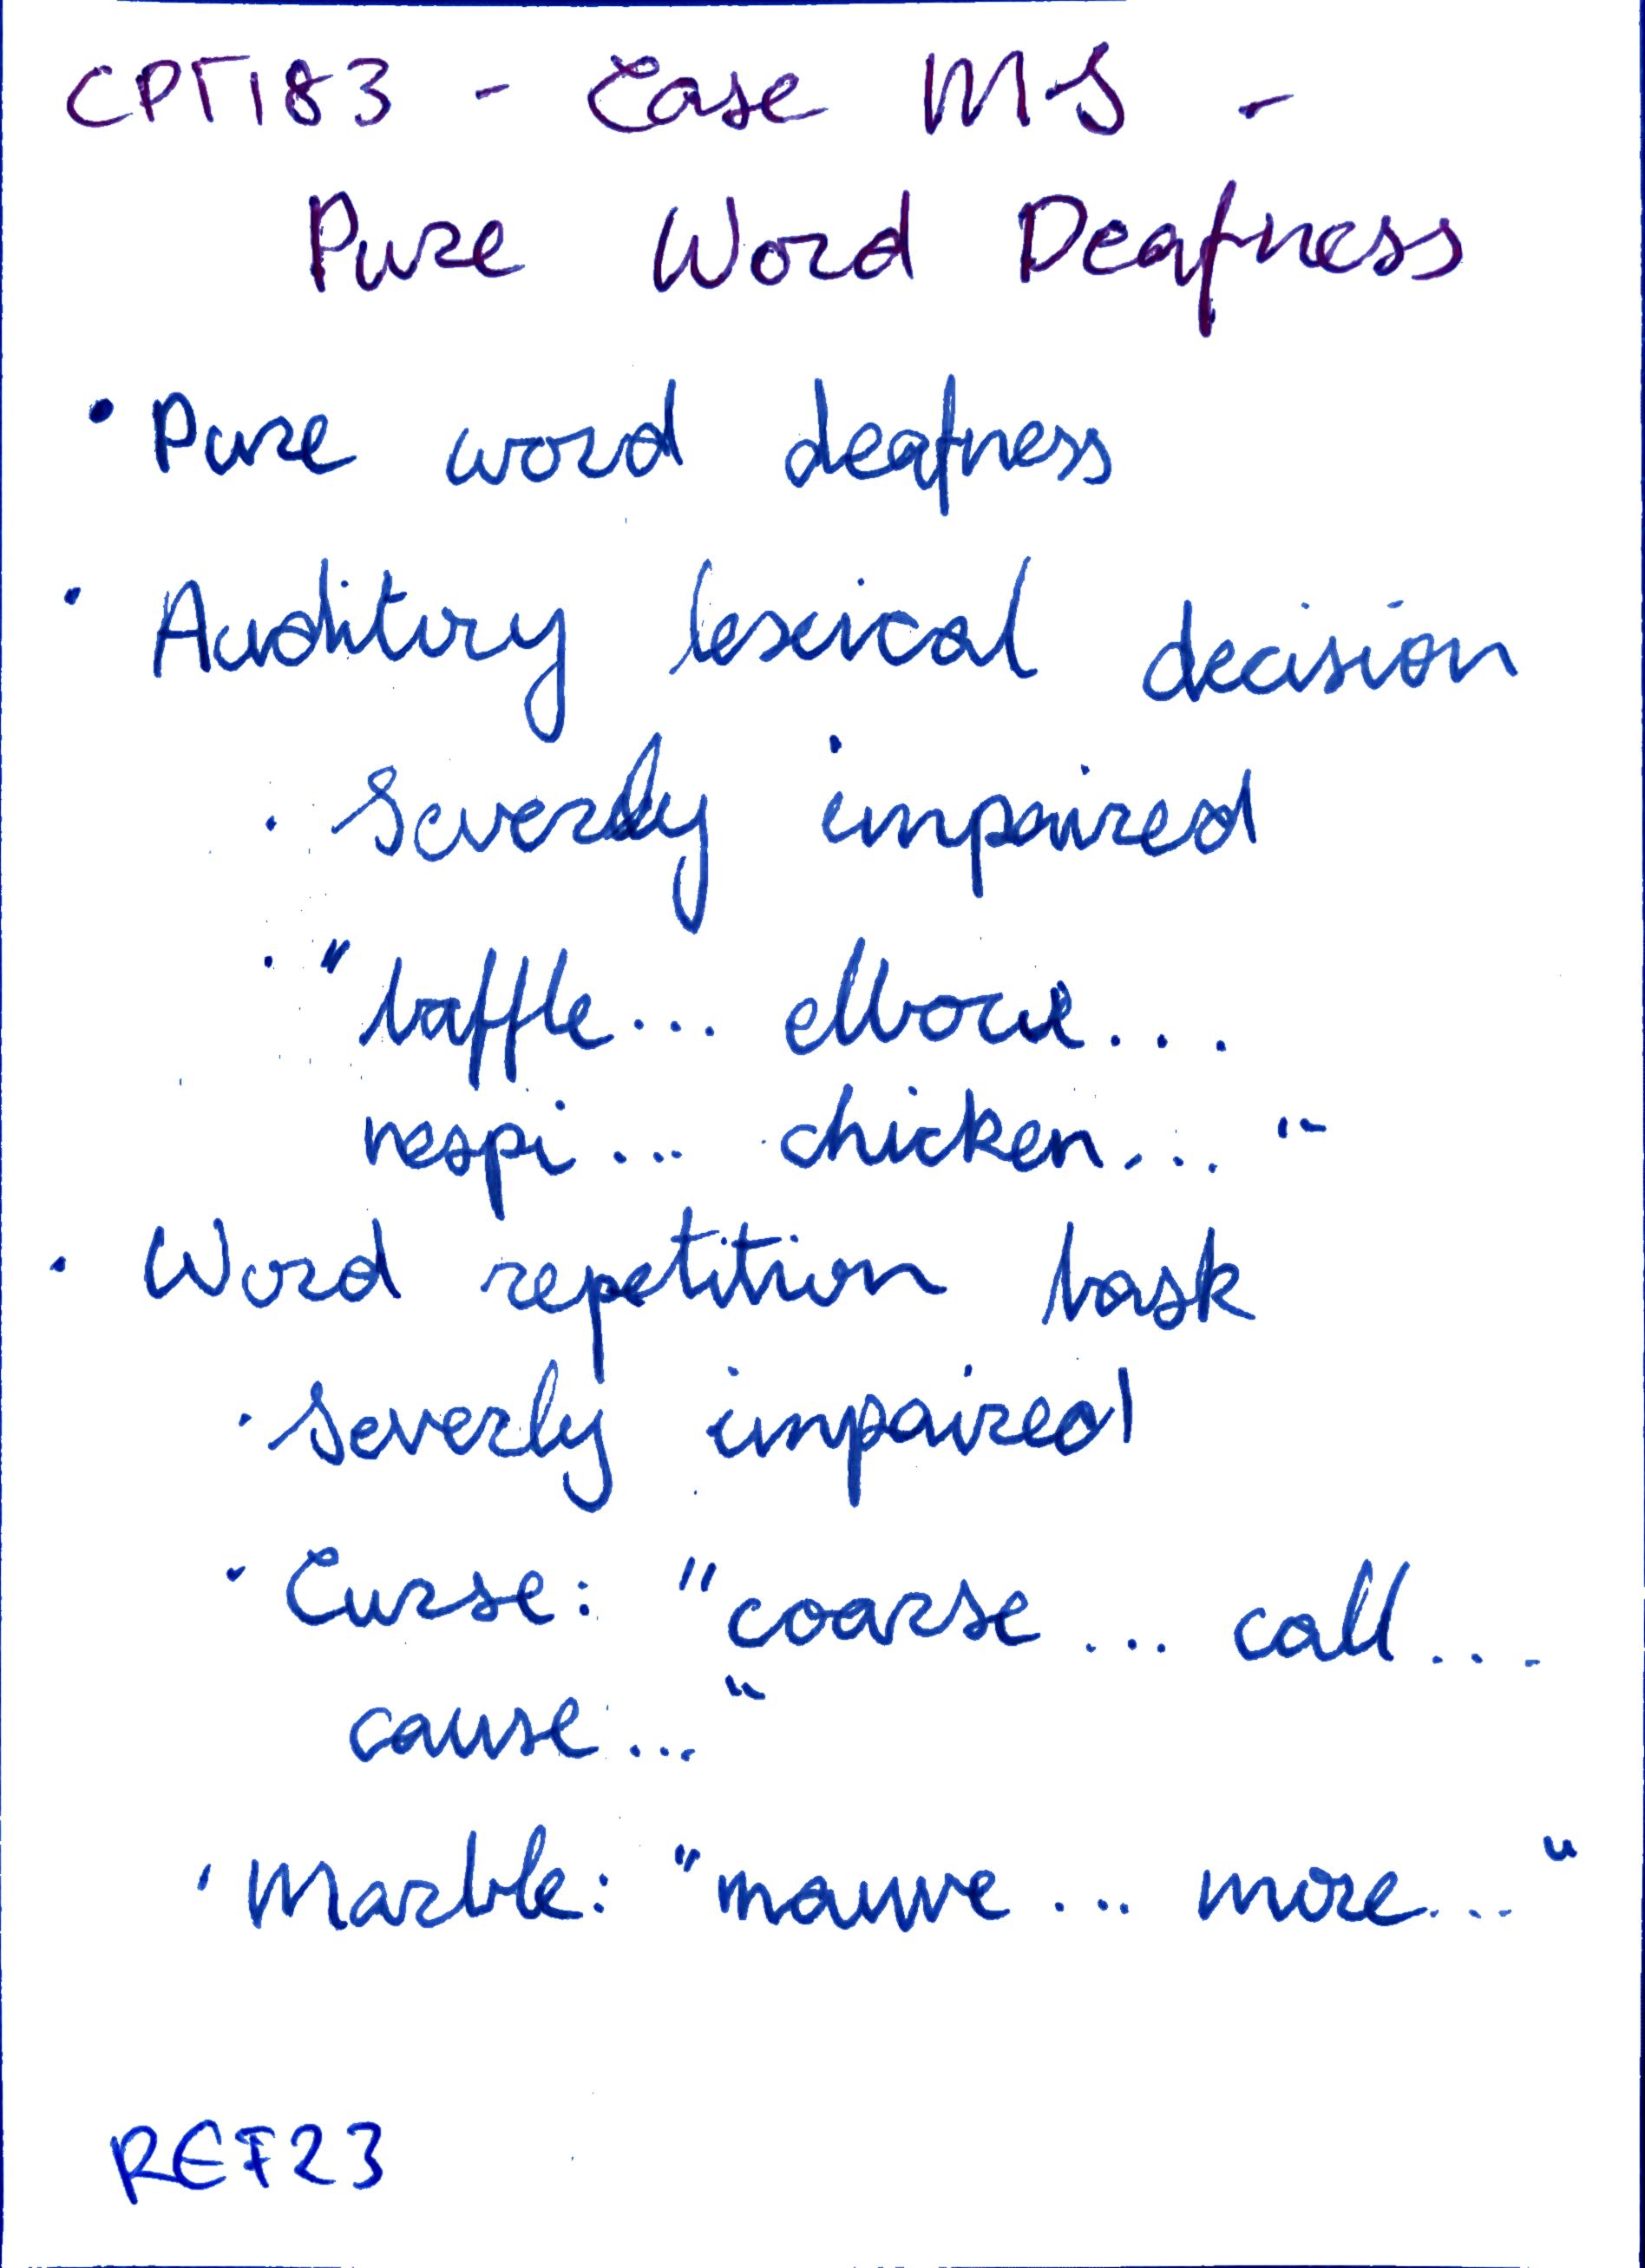 CPT183 - Case MS -
Pure Word Deafness
• Pure word deafness
• Auditory lexical decision
• Severly impaired
• "baffle... elbow...
nespi... chicken..."
• Word repetition task
• Severly impaired
• Curse: "coarse... call...
cause..."
• Marble: "mauve... more..."
REF23